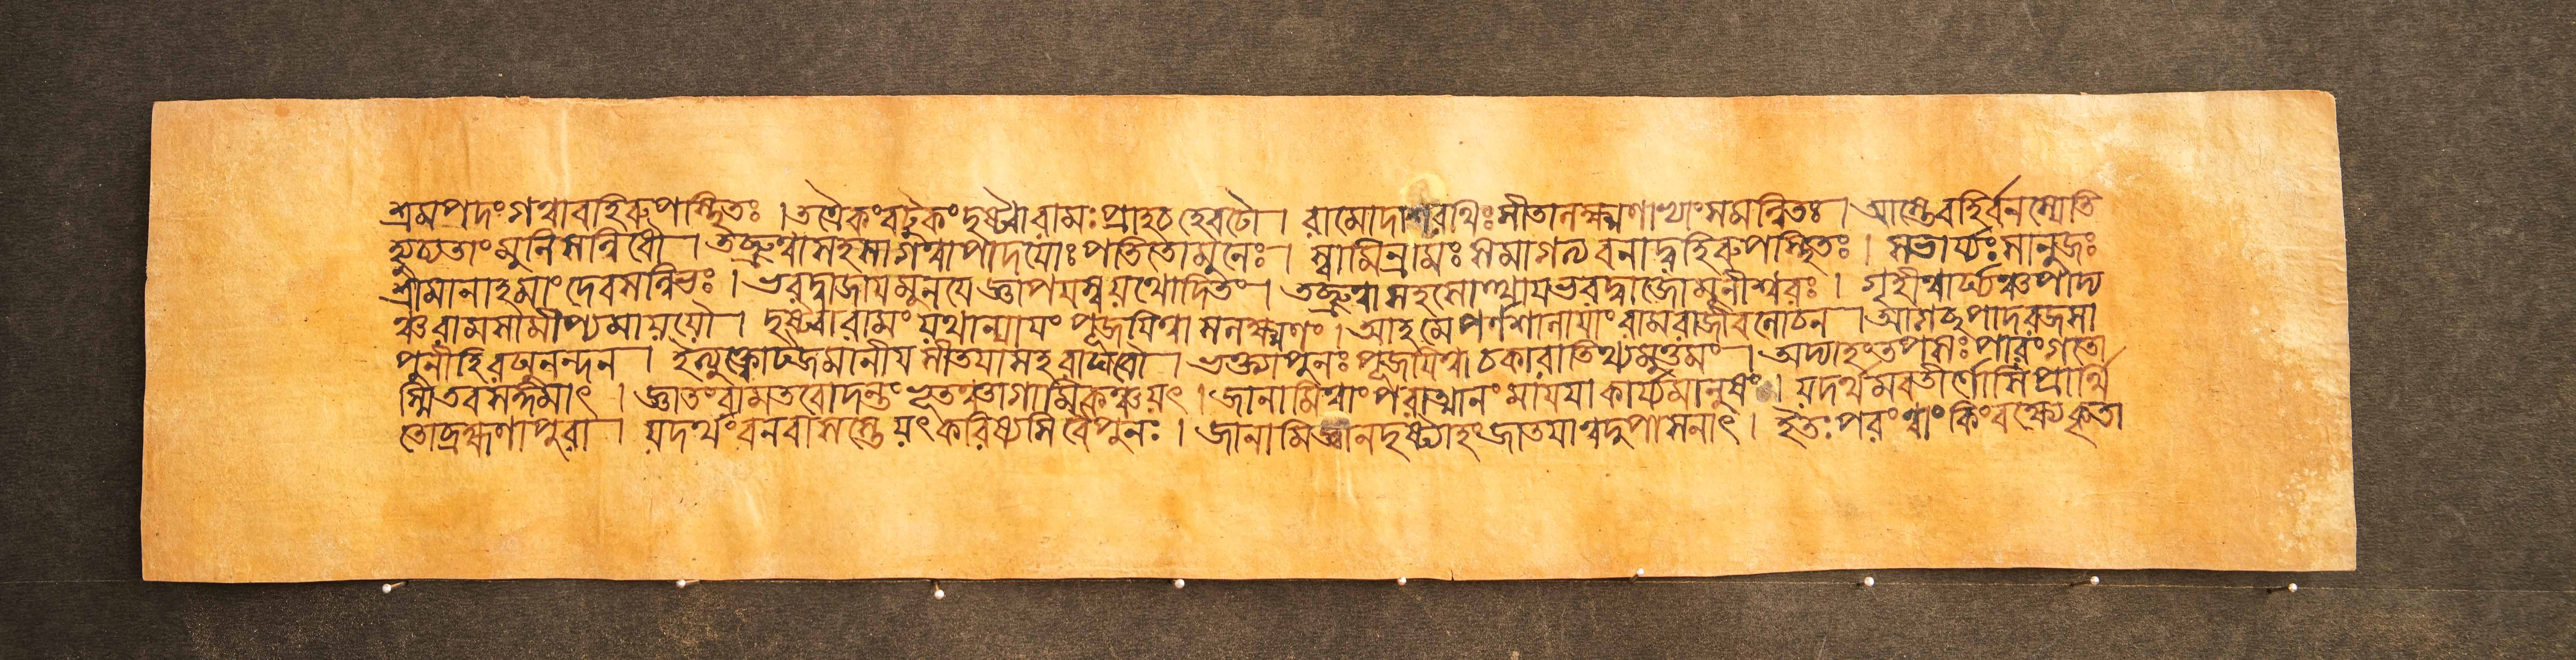 শ্রমপদংগত্বাবহিরুপস্থিতঃ । তত্রৈকংবটুকংদৃষ্ট্বারামঃপ্রাহচহেবটো । রামোদাশরথিঃসীতালক্ষ্মণাভ্যাংসমন্বিতঃ । আস্তেবহির্বনস্যেতি
হ্যুচ্যতাংমুনিসন্নিধৌ । তচ্ছ্রুত্বাসহসাগত্বাপাদয়োঃপতিতোমুনেঃ । স্বামিন্রামঃসমাগত্যবনাদ্বহিরুপস্থিতঃ । সভার্য্যঃসানুজঃ
শ্রীমানাহমাংদেবসন্নিভঃ । ভরদ্বাজায়মুনয়েজ্ঞাপয়স্বয়থোদিতং । তচ্ছ্রুত্বাসহসোত্থায়ভরদ্বাজোমুনীশ্বরঃ । গৃহীত্বার্ঘ্যঞ্চপাদ্য
ঞ্চরামসামীপ্যমায়য়ৌ । দৃষ্ট্বারামংয়থান্যায়ংপূজয়িত্বাসলক্ষ্মণং । আহমেপর্ণশালায়াংরামরাজীবলোচন । আগচ্ছপাদরজসা
পুনীহিরঘুনন্দন । ইত্যুক্ত্বোটজমানীয়সীতয়াসহরাঘবৌ । ভক্ত্যাপুনঃপূজয়িত্বাচকারাতিথ্যমুত্তমং । অদ্যাহংতপসঃপারংগতো
স্মিতবসঙ্গমাৎ । জ্ঞাতংরামতবোদন্তংভূতঞ্চাগামিকঞ্চয়ৎ । জানামিত্বাংপরাত্মানংমায়য়াকার্য্যমানুষং । য়দর্থমবতীর্ণোসিপ্রার্থি
তোব্রহ্মণাপুরা । য়দর্থংবনবাসস্তেয়ৎকরিষ্যসিবৈপুনঃ । জানামিজ্ঞানদৃষ্ট্যাহংজাতয়াত্বদুপাসনাৎ । ইতঃপরংত্বাংকিংবক্ষ্যেকৃতা